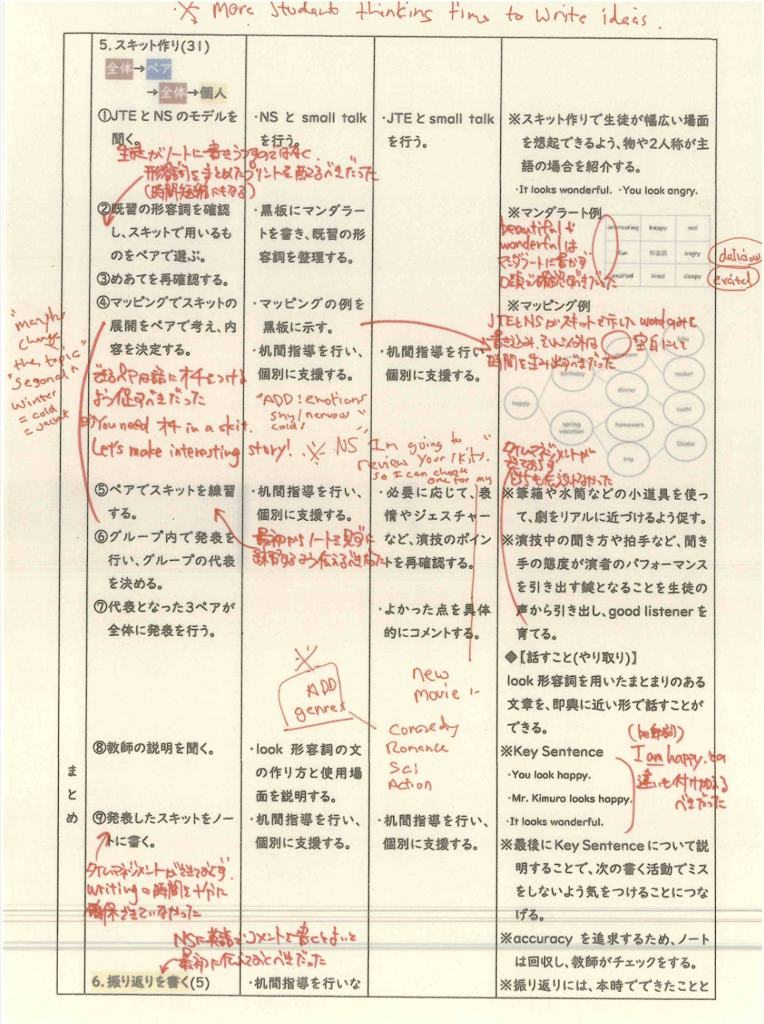 ※ More student thinking time to write ideas.
5. スキット作り(31)
全体→ペア
→全体→個人
①JTEとNSのモデルを
聞く。
生徒がノートに書きうつすのではなく
形容詞をまとめたプリントを配るべきだった
(時間短縮にもなる)
②既習の形容詞を確認
し、スキットで用いるも
のをペアで選ぶ。
③めあてを再確認する。
④マッピングでスキットの
展開をペアで考え、内
容を決定する。
"maybe
change
the topic"
winter
= cold
= jacket
できるペアは話にオチをつける
よう促すべきだった
You need オチ in a skit.
Let's make interesting story!
⑤ペアでスキットを練習
する。
⑥グループ内で発表を
行い、グループの代表
を決める。
⑦代表となった3ペアが
全体に発表を行う。
⑧教師の説明を聞く。
まとめ
⑨発表したスキットをノー
トに書く。
タイムマネジメントができておらず、
writingの時間を十分に
確保できていなかった
6. 振り返りを書く(5)
・NSとsmall talk
を行う。
・黒板にマンダラート
を書き、既習の形
容詞を整理する。
・マッピングの例を
黒板に示す。
・机間指導を行い、
個別に支援する。
"ADD! emotions
shy/nervous
cold!
※ NS
・机間指導を行い、
個別に支援する。
最初からノートを見ずに
練習するよう伝えるべきだった
※
ADD
genres
・look 形容詞の文
の作り方と使用場
面を説明する。
・机間指導を行い、
個別に支援する。
NSに英語でコメントを書くとよいと
最初に伝えておくべきだった
・机間指導を行いな
・JTEとsmall talk
を行う。
・机間指導を行い、
個別に支援する。
I'm going to
review your skits
so I can check
one for my
・必要に応じて、表
情やジェスチャー
など、演技のポイン
トを再確認する。
・よかった点を具体
的にコメントする。
new
movie
Comedy
Romance
Sci
Action
・机間指導を行い、
個別に支援する。
※スキット作りで生徒が幅広い場面
を想起できるよう、物や2人称が主
語の場合を紹介する。
・It looks wonderful. ・You look angry.
※マンダラート例
beautifulや
wonderfulは
マンダラートに書かず
口頭で確認すべきだった
interesting happy sad
fun 形容詞 angry
excited tired sleepy
※マッピング例
JTEとNSがスキットで示したwordのみを
書き込み、それ以外は 空白にして
時間を生み出すべきだった
happy
birthday
spring
vacation
dinner
homework
trip
cake
racket
sushi
Osaka
タイムマネジメントが
できておらず
※筆箱や水筒などの小道具を使っ
て、劇をリアルに近づけるよう促す。
※演技中の聞き方や拍手など、聞き
手の態度が演者のパフォーマンス
を引き出す鍵となることを生徒の
声から引き出し、good listenerを
育てる。
◆【話すこと(やり取り)】
look 形容詞を用いたまとまりのある
文章を、即興に近い形で話すことが
できる。
※Key Sentence
・You look happy.
・Mr. Kimura looks happy.
・It looks wonderful.
(be動詞)
I am happy.との
違いも付け加える
べきだった
※最後にKey Sentenceについて説
明することで、次の書く活動でミス
をしないよう気をつけることにつな
げる。
※accuracyを追求するため、ノート
は回収し、教師がチェックをする。
※振り返りには、本時でできたことと